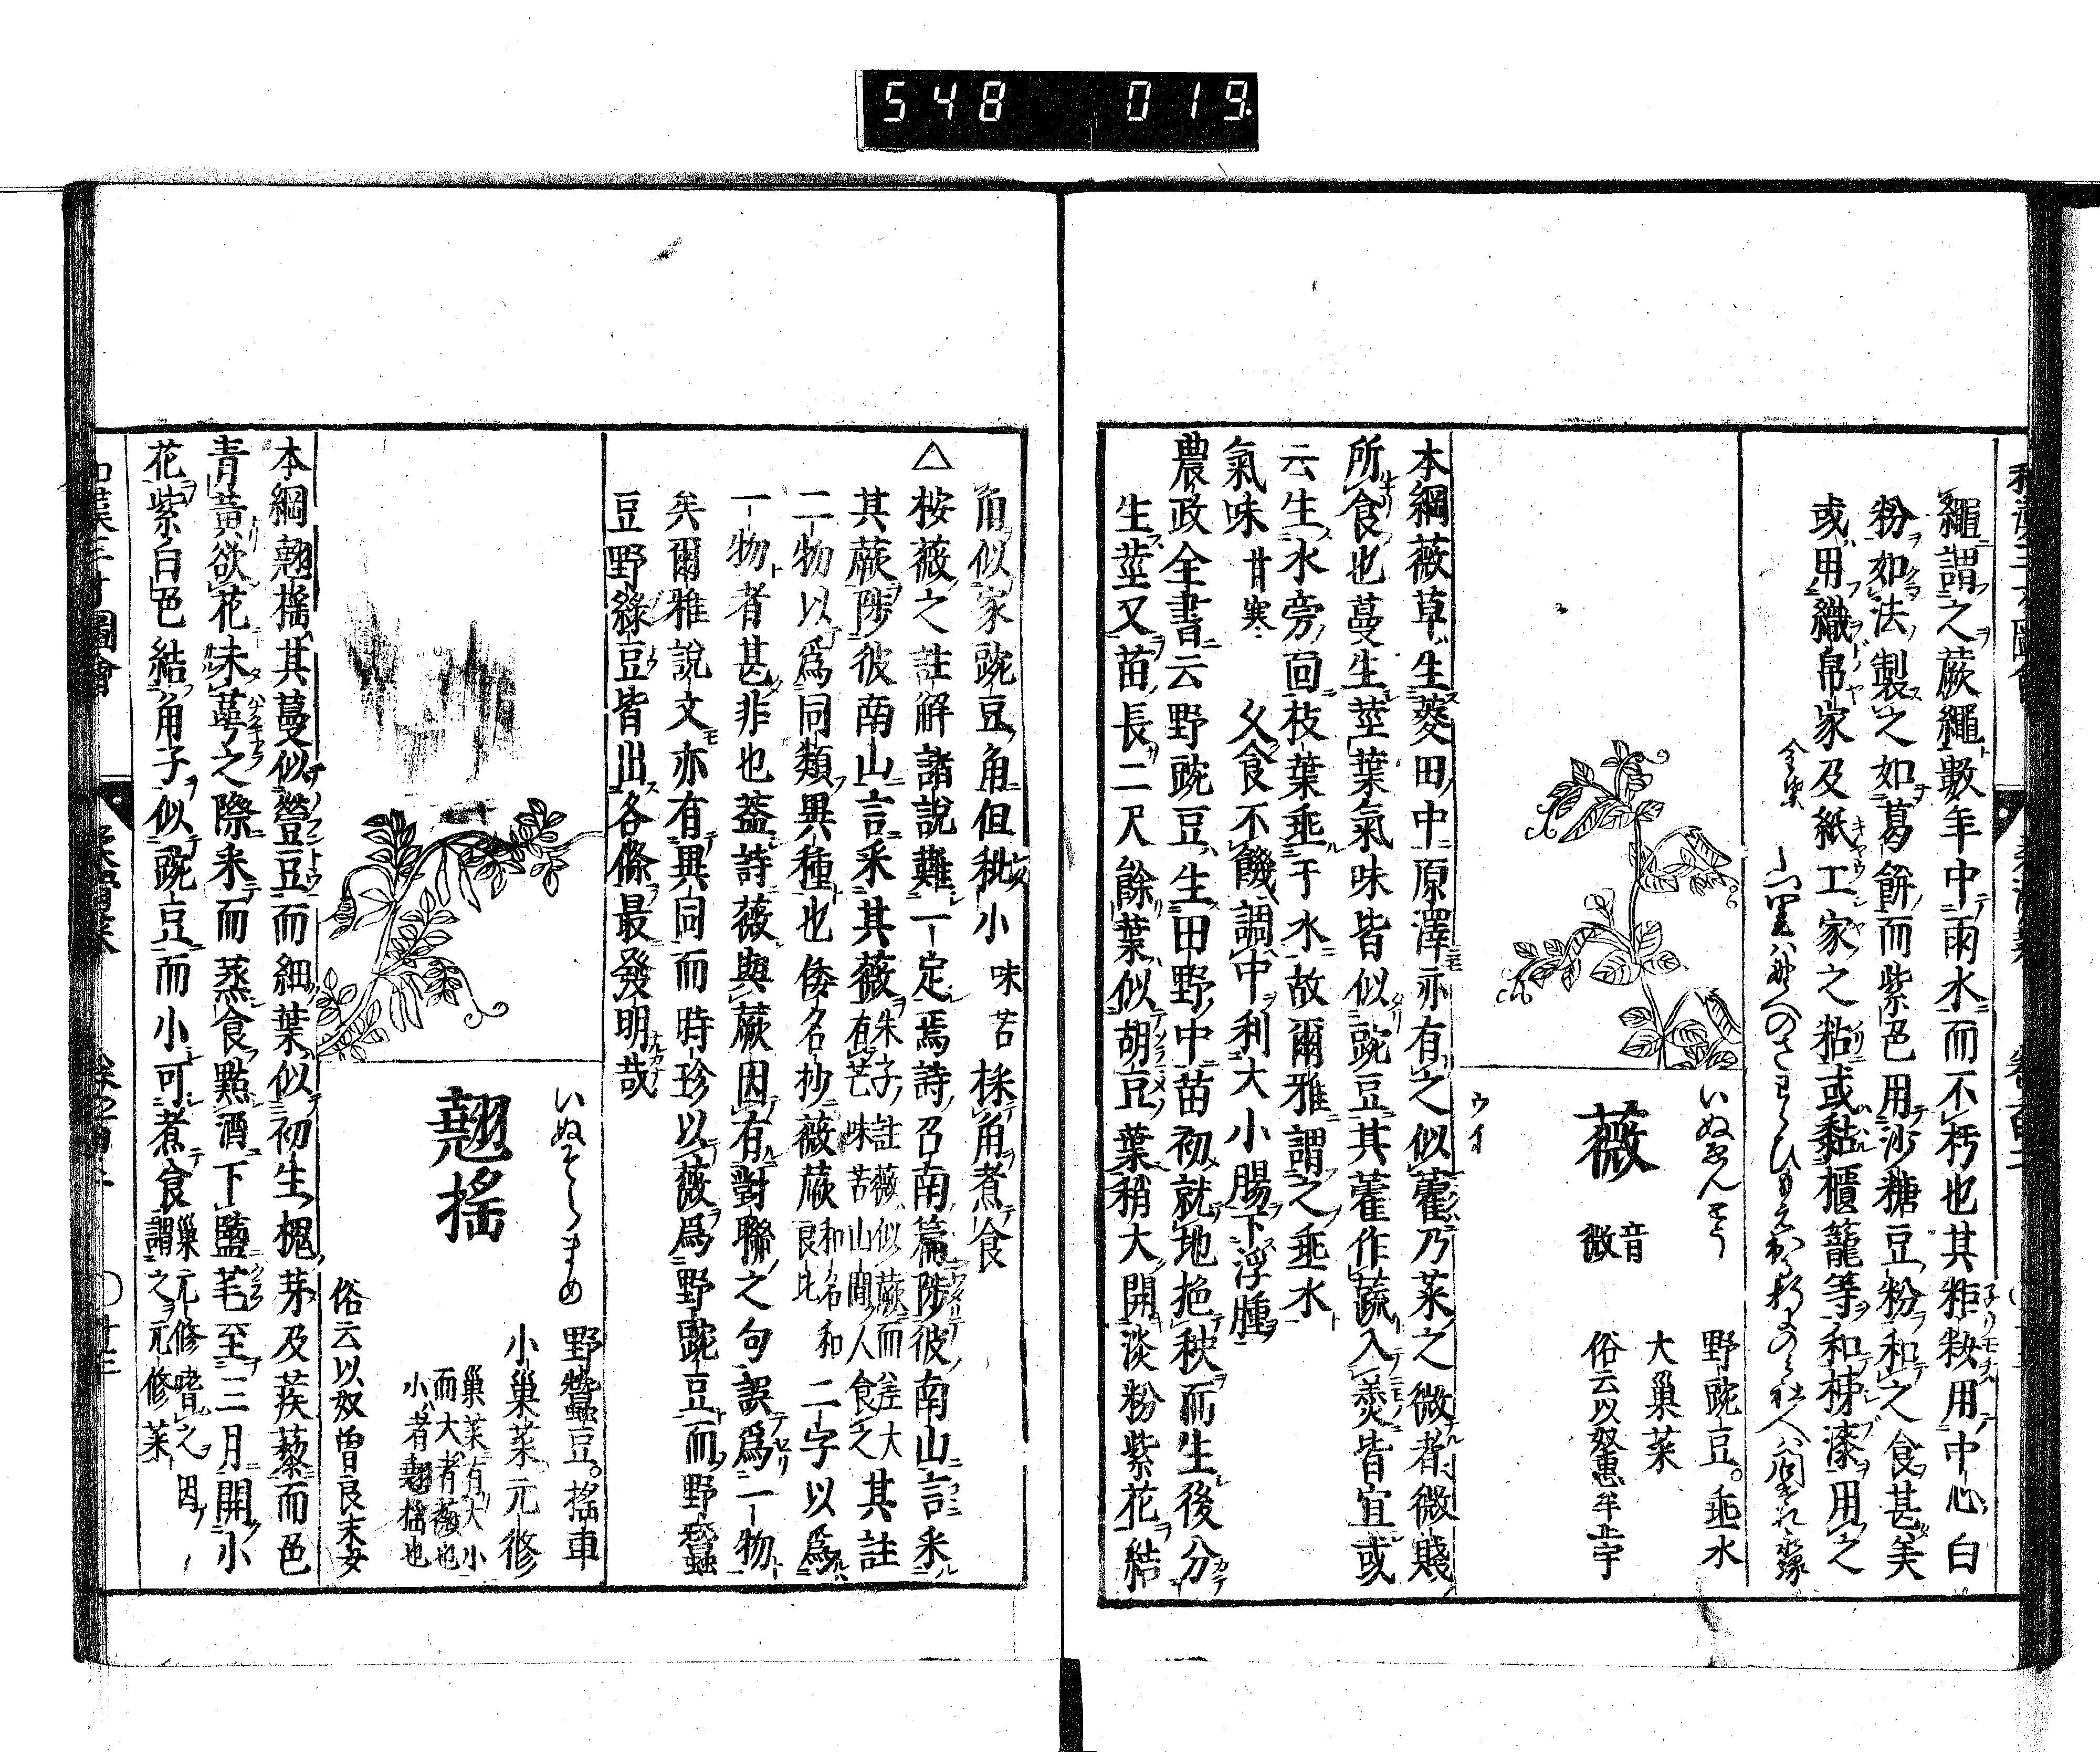 548 019
繩謂之蕨繩數年中雨水而不朽也其粔籹用中心白
粉如法製之如葛餅而紫色用沙糖豆粉和之食甚美
或用織帛家及紙工家之粘或黏櫃籠等和柹漆用之
薇
音微
いぬゑんどう
野豌豆。垂水
大巢菜
俗云以奴惠牟止宇
本綱薇草生麥田中原澤亦有之似藿乃菜之微者微賤
所食也蔓生莖葉氣味皆似豌豆其藿作蔬入羹皆宜或
云生水旁回枝葉垂于水故爾雅謂之垂水
氣味甘寒 久食不饑調中利大小腸下浮腫
農政全書云野豌豆生田野中苗初就地拖秧而生後分
生莖又苗長二尺餘葉似胡豆葉稍大開淡粉紫花結
角似家豌豆角但秕小味苦採角煮食
△桉薇之註解諸說難一定焉詩召南篇陟彼南山言采
其蕨陟彼南山言采其薇朱子註薇似蕨而差大有芒味苦山間人食之其註
二物以爲同類異種也倭名抄薇蕨和名和良比二字以爲
一物者甚非也蓋詩薇與蕨因有對聯之句誤爲一物
矣爾雅說文亦有異同而時珍以薇爲野豌豆而野蠶
豆野綠豆皆出各條最發明哉
翹搖
いぬそらまめ
野蠶豆。搖車
小巢菜 元修菜
巢菜有大小而大者薇也小者翹搖也
俗云以奴曾良末女
本綱翹搖其蔓似䝁豆而細葉似初生槐芽及蒺藜而色
青黃欲花未萼之際采而蒸食點酒下鹽芼至三月開小
花紫白色結角子似豌豆而小可煮食巢元修嗜之因謂之元修菜